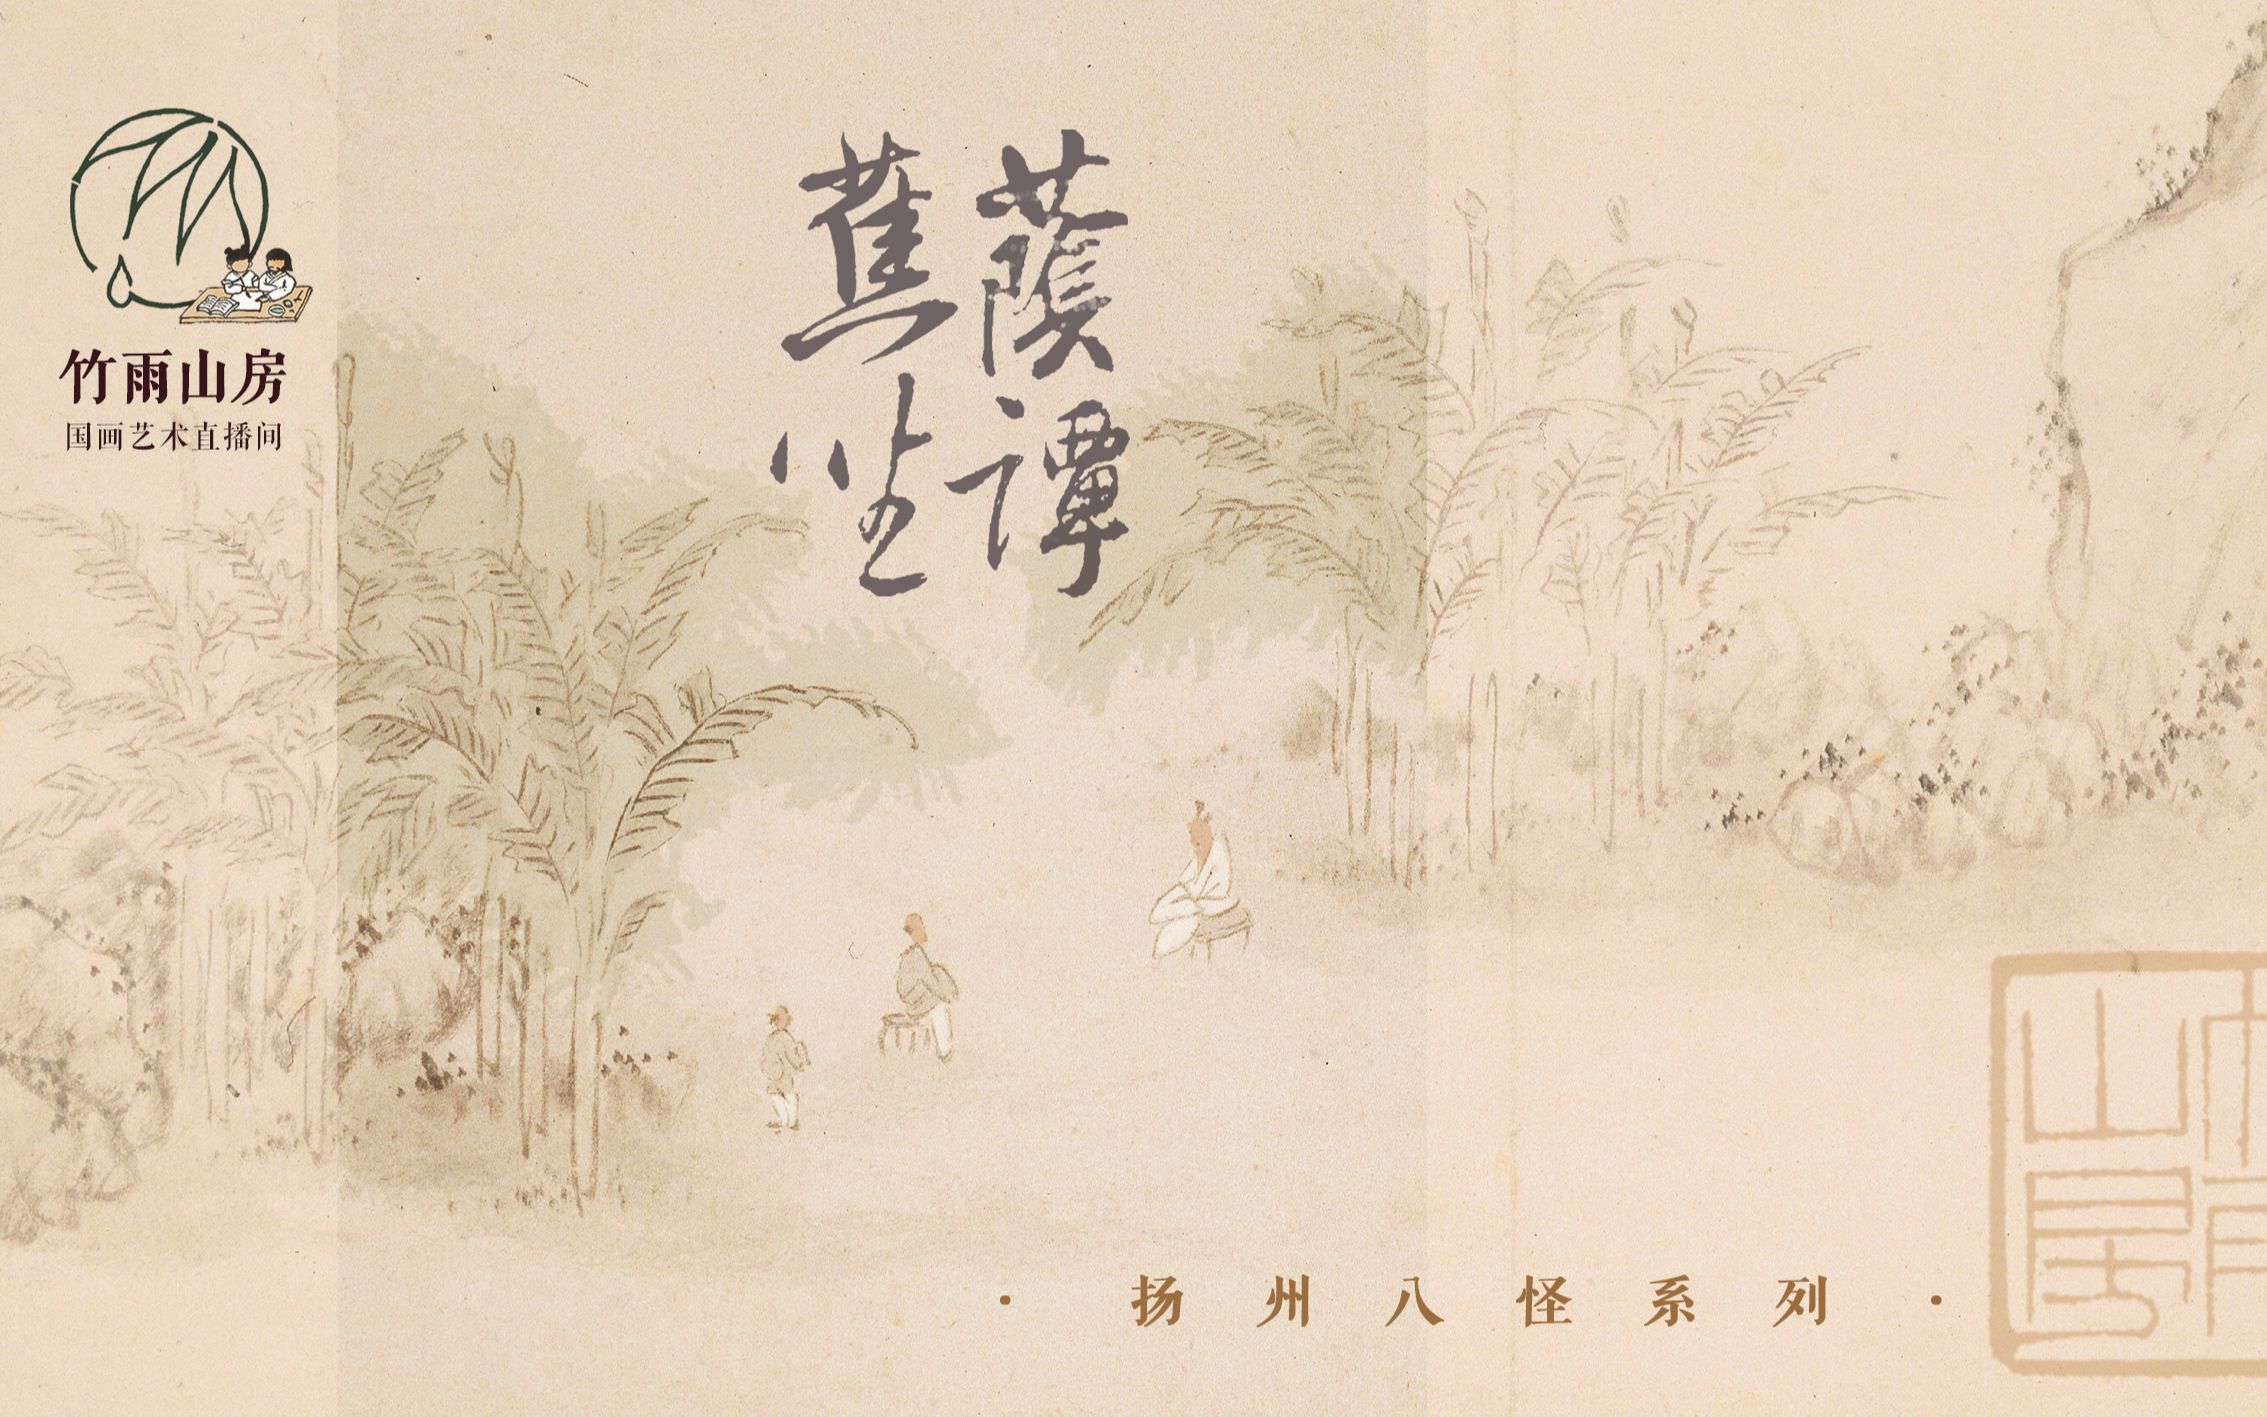 竹雨山房
国画艺术直播间
蕉蔭
坐譚
·扬州八怪系列·
山房